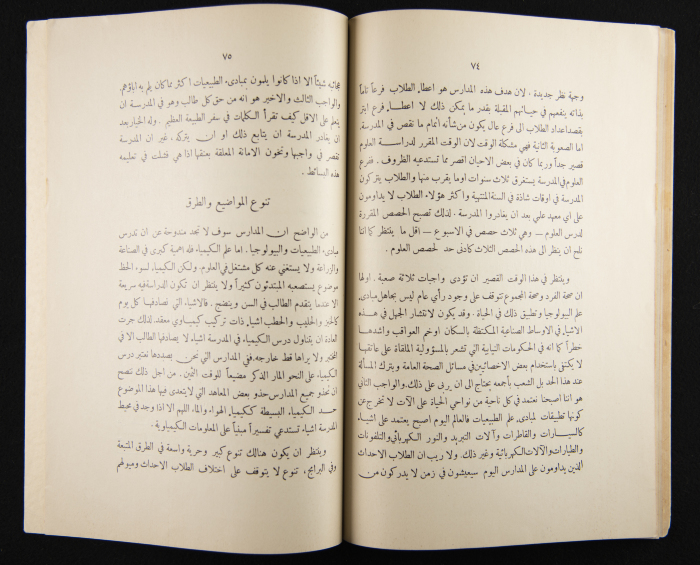 ٧٤
وجهة نظر جديدة . لان هدف هذه المدارس هو اعطاء الطلاب فرعاً تاماً
بذاته ينفعهم في حياتهم المقبلة بقدر ما يمكن ذلك لا اعطاء فرع ابتر
بقصد اعداد الطلاب الى فرع عال يكون من شأنه اتمام ما نقص في المدرسة.
اما الصعوبة الثانية فهي مشكلة الوقت لان الوقت المقرر لدراسة العلوم
قصير جداً وربما كان في بعض الاحيان اقصر مما تستدعيه الظروف . ففرع
العلوم في المدرسة يستغرق ثلاث سنوات او ما يقرب منها والطلاب يتركون
المدرسة في اوقات شاذة في السنة المنتهية واكثر هؤلاء الطلاب لا يداومون
على اي معهد علمي بعد ان يغادروا المدرسة . لذلك تصبح الحصص المقررة
لدرس العلوم — وهي ثلاث حصص في الاسبوع — اقل ما ينتظر كما اننا
نلح ان ينظر الى هذه الحصص الثلاث كادنى حد لحصص العلوم .
وينتظر في هذا الوقت القصير ان تؤدى واجبات ثلاثة صعبة . اولها
ان صحة الفرد وصحة المجموع تتوقف على وجود رأي عام ليس يجاهل مبادىء
علم البيولوجيا وتطبيق ذلك في الحياة . وقد يكون لانتشار الجهل في هذه
الاشياء في الاوساط الصناعية المكتظة بالسكان اوخم العواقب واشدها
خطراً كما انه في الحكومات النيابية التي تشعر بالمسؤولية الملقاة على عاتقها
لا يكتفى باستخدام بعض الاخصائيين في مسائل الصحة العامة ويترك المسألة
عند هذا الحد بل الشعب بأجمعه يحتاج الى ان يربى على ذلك . والواجب الثاني
هو اننا اصبحنا نعتمد في كل ناحية من نواحي الحياة على الآلات لا تخرج عن
كونها تطبيقات لمبادىء علم الطبيعيات فالعالم اليوم اصبح يعتمد على اشياء
كالسيارات والقاطرات وآلات التبريد والنور الكهربائي والتلفونات
والطيارات والآلات الكهربائية وغير ذلك . ولا ريب ان الطلاب الاحداث
الذين يداومون على المدارس اليوم سيعيشون في زمن لا يدركون من
٧٥
عجائبه شيئاً الا اذا كانوا يلمون بمبادىء الطبيعيات اكثر مما كان يلم به اباؤهم.
والواجب الثالث والاخير هو انه من حق كل طالب وهو في المدرسة ان
يتعلم على الاقل كيف تقرأ الكلمات في سفر الطبيعة العظيم . وله الخيار بعد
ان يغادر المدرسة ان يتابع ذلك او ان يتركه ، غير ان المدرسة
تقصر في واجبها وتخون الامانة المعلقة بعنقها اذا هي فشلت في تعليمه
هذه البسائط .
تنوع المواضيع والطرق
من الواضح ان المدارس سوف لا تجد مندوحة عن ان تدرس
مبادىء الطبيعيات والبيولوجيا . اما علم الكيمياء فله اهمية كبرى في الصناعة
والزراعة ولا يستغني عنه كل مشتغل في العلوم . ولكن الكيمياء لسوء الحظ
موضوع يستصعبه المبتدئون كثيراً ولا ينتظر ان تكون الدراسة فيه سريعة
الا عندما يتقدم الطالب في السن وينضج . فالاشياء التي نصادفها كل يوم
كالخبز والحليب والحطب اشياء ذات تركيب كيمياوي معقد . لذلك جرت
العادة ان يتناول درس الكيمياء في المدرسة اشياء لا يصادفها الطالب الا في
المختبر ولا يراها قط خارجه. ففي المدارس التي نحن بصددها نعتبر درس
الكيمياء على النحو المار الذكر مضيعاً للوقت الثمين . من اجل ذلك ننصح
ان تحذو جميع المدارس حذو بعض المعاهد التي لا يتعدى فيها هذا الموضوع
حد الكيمياء البسيطة ككيمياء الهواء والماء اللهم الا اذا وجد في محيط
المدرسة اشياء تستدعي تفسيراً مبنياً على المعلومات الكيمياوية .
وينتظر ان يكون هنالك تنوع كبير وحرية واسعة في الطرق المتبعة
وفي البرامج، تنوع لا يتوقف على اختلاف الطلاب الاحداث وميولهم